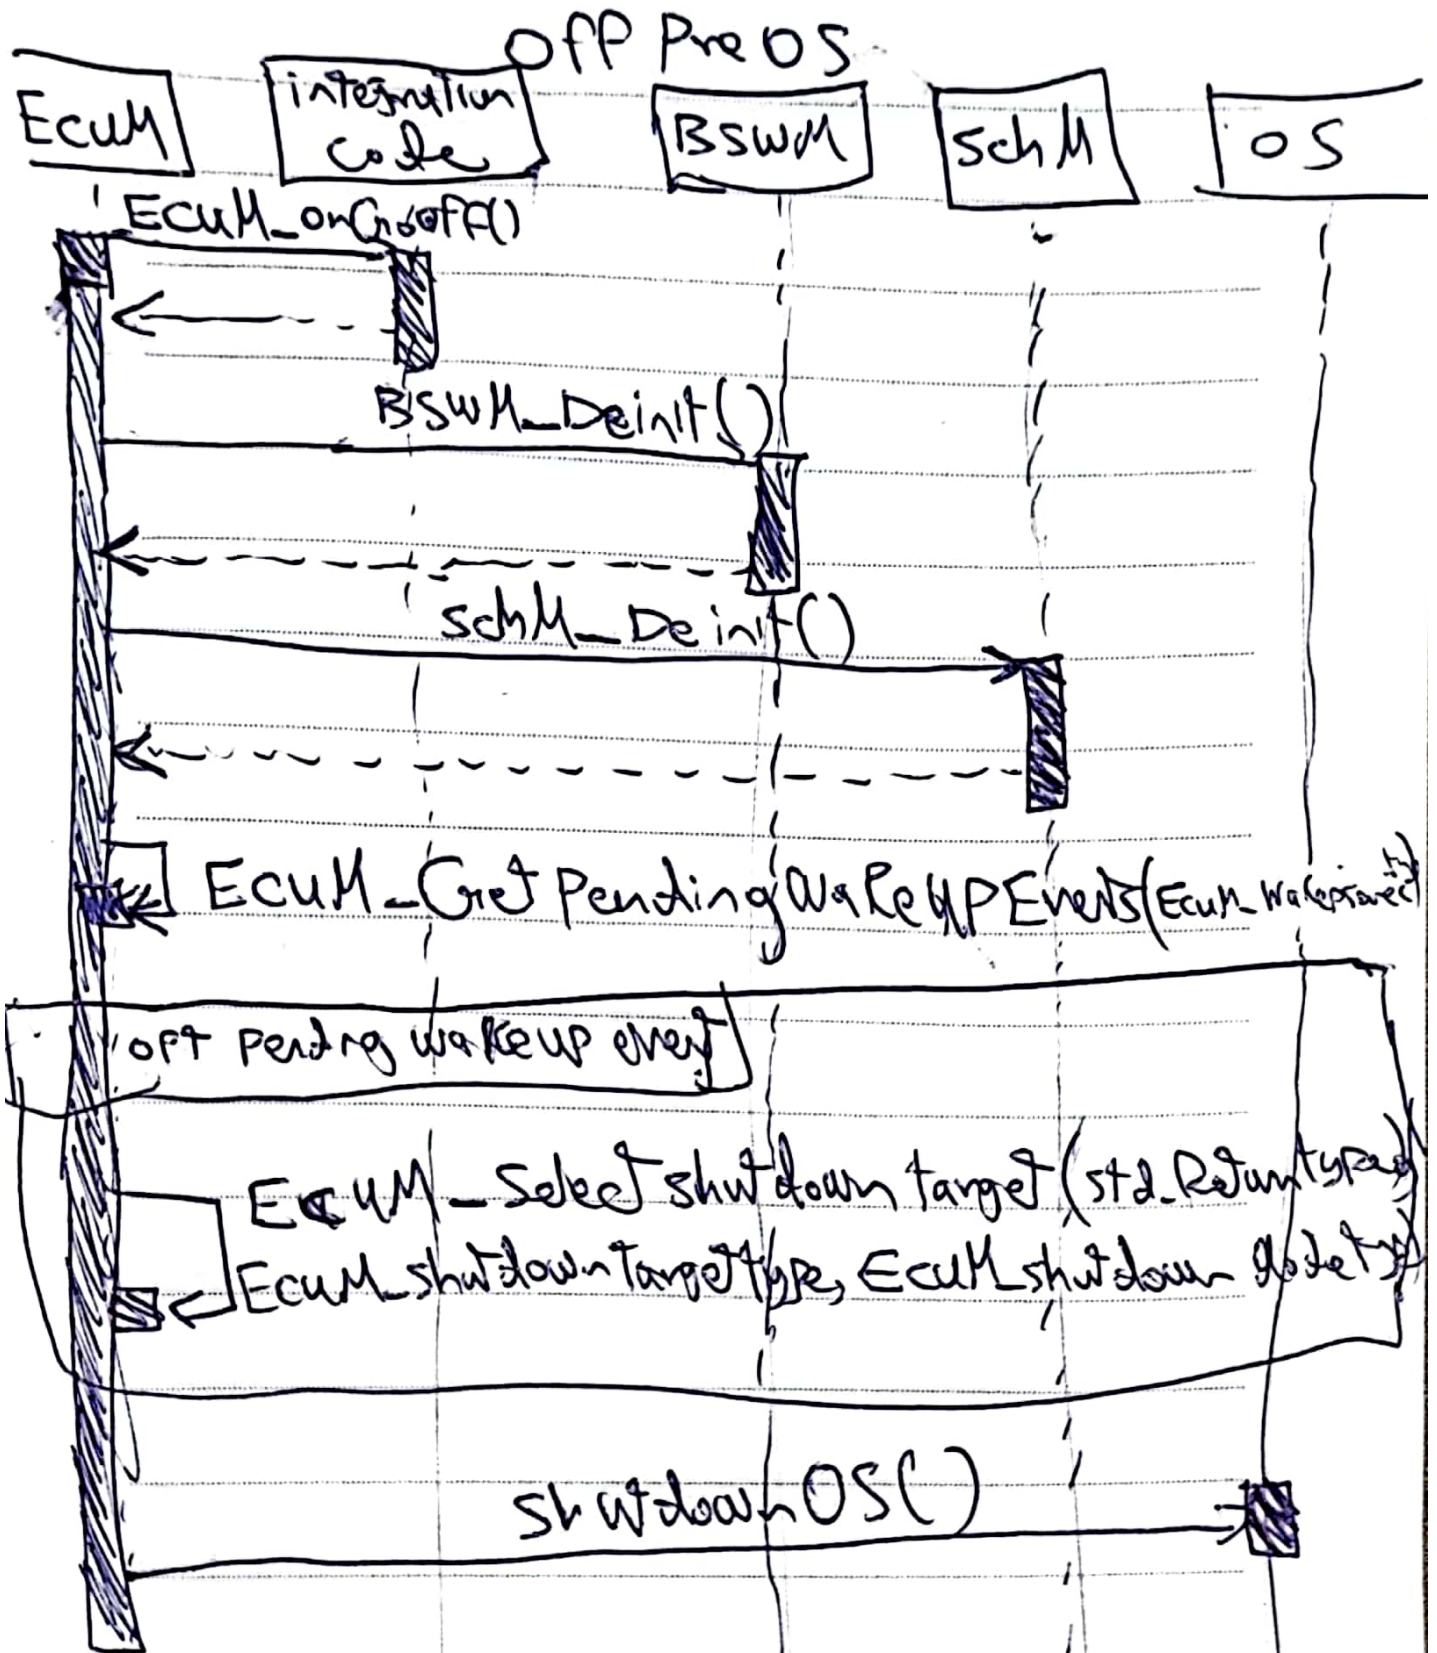 Off Pre OS
EcuM
integration
code
BSWM
SchM
OS
EcuM_onGooff()
BSWM_Deinit()
SchM_Deinit()
EcuM_Get Pending WakeUP Events(EcuM_
opt Pending wakeup event
EcuM_Select shutdown target (std_Return type,
EcuM_shutdownTargettype, EcuM_shutdown
shutdownOS()